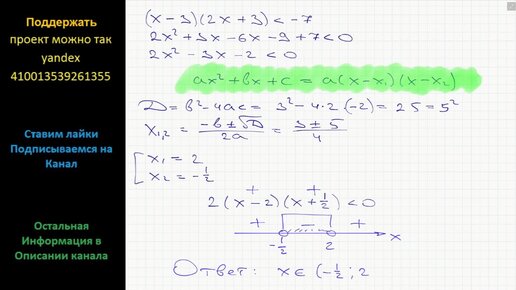 Поддержать
проект можно так
yandex
410013539261355
Ставим лайки
Подписываемся на
Канал
Остальная
Информация в
Описании канала
(x-3)(2x+3) < -7
2x² + 3x - 6x - 9 + 7 < 0
2x² - 3x - 2 < 0
ax² + bx + c = a(x - x₁)(x - x₂)
D = b² - 4ac = 3² - 4·2·(-2) = 25 = 5²
x₁,₂ = (-b ± √D)/2a = (3 ± 5)/4
[ x₁ = 2
x₂ = -1/2
+ +
2(x - 2)(x + 1/2) < 0
+ - +
-1/2 2 x
Ответ: x ∈ (-1/2; 2